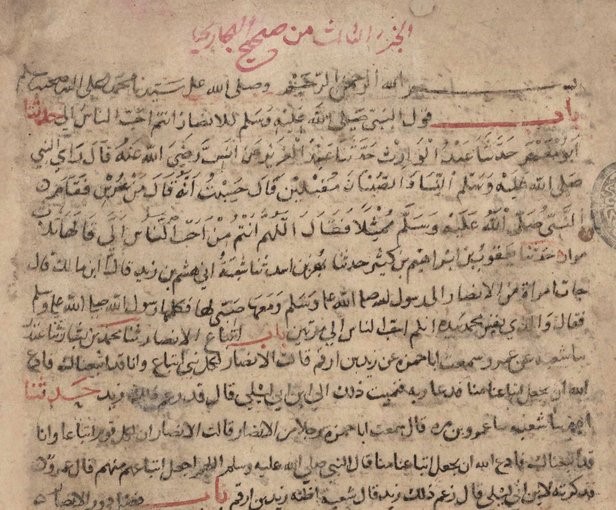 الجزء الثالث من صحيح البخاري
بسم الله الرحمن الرحيم وصلى الله على سيدنا محمد وعلى اله وصحبه وسلم
باب قول النبي صلى الله عليه وسلم للانصار انتم احب الناس الي حدثنا
ابو معمر حدثنا عبد الوارث حدثنا عبد العزيز عن انس رضي الله عنه قال راي النبي
صلى الله عليه وسلم النساء والصبيان مقبلين قال حسبت انه قال من عرس فقام
النبي صلى الله عليه وسلم ممثلا فقال اللهم انتم من احب الناس الي قالها ثلاث
مرار حدثنا يعقوب بن ابراهيم بن كثير حدثنا بهز بن اسد ثنا شعبة اني هشام بن زيد قال انس بن مالك قال
جات امراة من الانصار الى رسول الله صلى الله عليه وسلم ومعها صبي لها فكلمها رسول الله صلى الله عليه وسلم
فقال والذي نفسي بيده انكم احب الناس الي مرتين باب اتباع الانصار ثنا محمد بن بشار ثنا غندر
ثنا شعبة عن عمرو سمعت ابا حمزة عن زيد بن ارقم قالت الانصار لكل نبي اتباع وانا قد اتبعناك فادع
الله ان يجعل اتباعنا منا فدعا به فنميت ذلك الى ابن ابي ليلى قال قد زعم ذلك زيد حدثنا
ادم ثنا شعبة ثنا عمرو بن مرة قال سمعت ابا حمزة رجلا من الانصار قالت الانصار ان لكل قوم اتباعا وانا
قد اتبعناك فادع الله ان يجعل اتباعنا منا قال النبي صلى الله عليه وسلم اللهم اجعل اتباعهم منهم قال عمرو
فذكرته لابن ابي ليلى قال زعم ذلك زيد قال شعبة اظنه زيد بن ارقم باب فضل دور الانصار